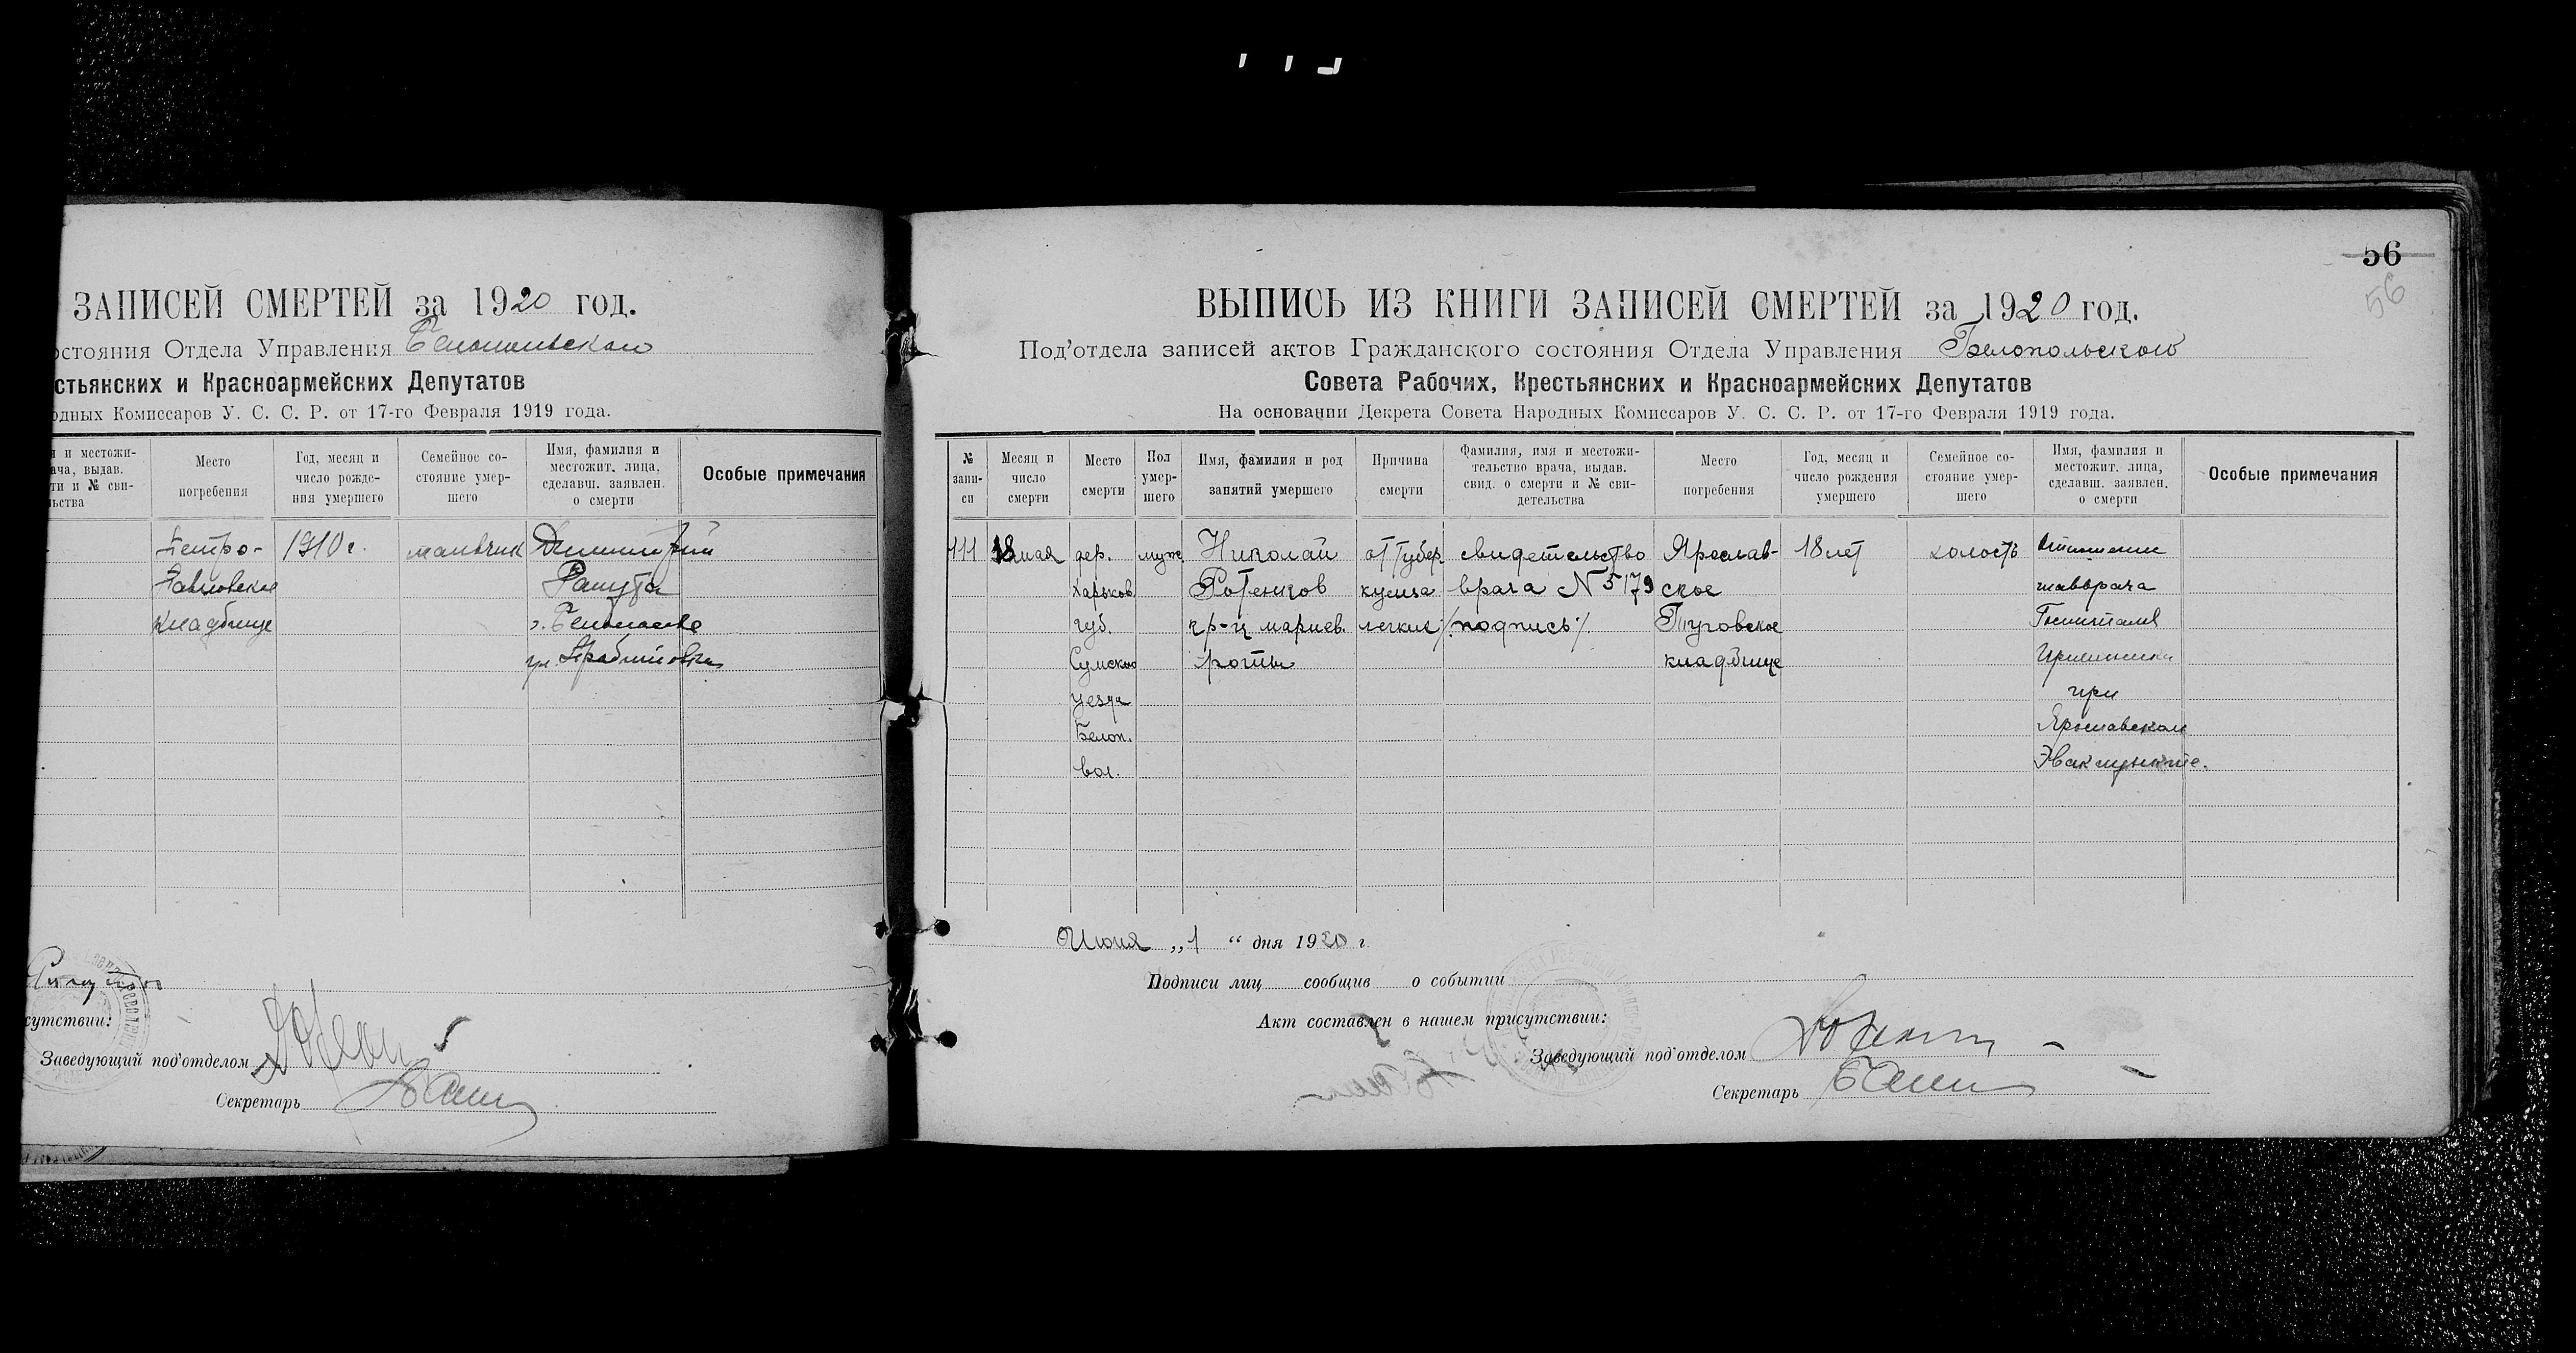 ЗАПИСЕЙ СМЕРТЕЙ за 1920 год.
остояния Отдела Управления Белопольского
стьянских и Красноармейских Депутатов
одных Комиссаров У. С. С. Р. от 17-го Февраля 1919 года.
я и местожи-
ача, выдав.
ти и № сви-
ьства
Место
погребения
Год, месяц и
число рожде-
ния умершего
Семейное со-
стояние умер-
шего
Имя, фамилия и
местожит. лица,
сделавш. заявлен.
о смерти
Особые примечания
Петро-
Павловское
кладбище
1910 г.
мальчик
Димитрий
г. Белополье
ул.
сутствии:
Заведующий под'отделом
Секретарь
56
56
ВЫПИСЬ ИЗ КНИГИ ЗАПИСЕЙ СМЕРТЕЙ за 1920 год.
Под'отдела записей актов Гражданского состояния Отдела Управления Белопольского
Совета Рабочих, Крестьянских и Красноармейских Депутатов
На основании Декрета Совета Народных Комиссаров У. С. С. Р. от 17-го Февраля 1919 года.
№
запи-
си
Месяц и
число
смерти
Место
смерти
Пол
умер-
шего
Имя, фамилия и род
занятий умершего
Причина
смерти
Фамилия, имя и местожи-
тельство врача, выдав.
свид. о смерти и № сви-
детельства
Место
погребения
Год, месяц и
число рождения
умершего
Семейное со-
стояние умер-
шего
Имя, фамилия и
местожит. лица,
сделавш. заявлен.
о смерти
Особые примечания
111
18 мая
дер.
Харьков.
губ.
Сумского
уезда
Белоп.
вол.
муж.
Николай
кр-ц маршев.
роты
от тубер
кулеза
легких
свидетельство
врача № 5179
/подпись/.
Ярослав-
ское
Туговское
кладбище
18 лет
холост
Отношение
главврача
Госпиталя
при
Ярославском
Эвакпункте.
Июня „1 “ дня 1920 г.
Подписи лиц сообщив о событии
Акт составлен в нашем присутствии:
Заведующий под'отделом
Секретарь